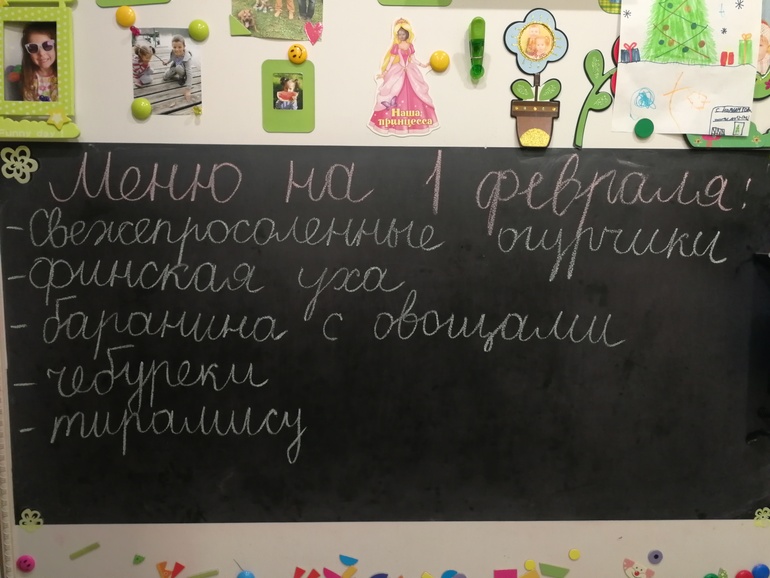 Наша принцесса
Меню на 1 февраля:
- свежепросоленные огурчики
- финская уха
- баранина с овощами
- чебуреки
- тирамису